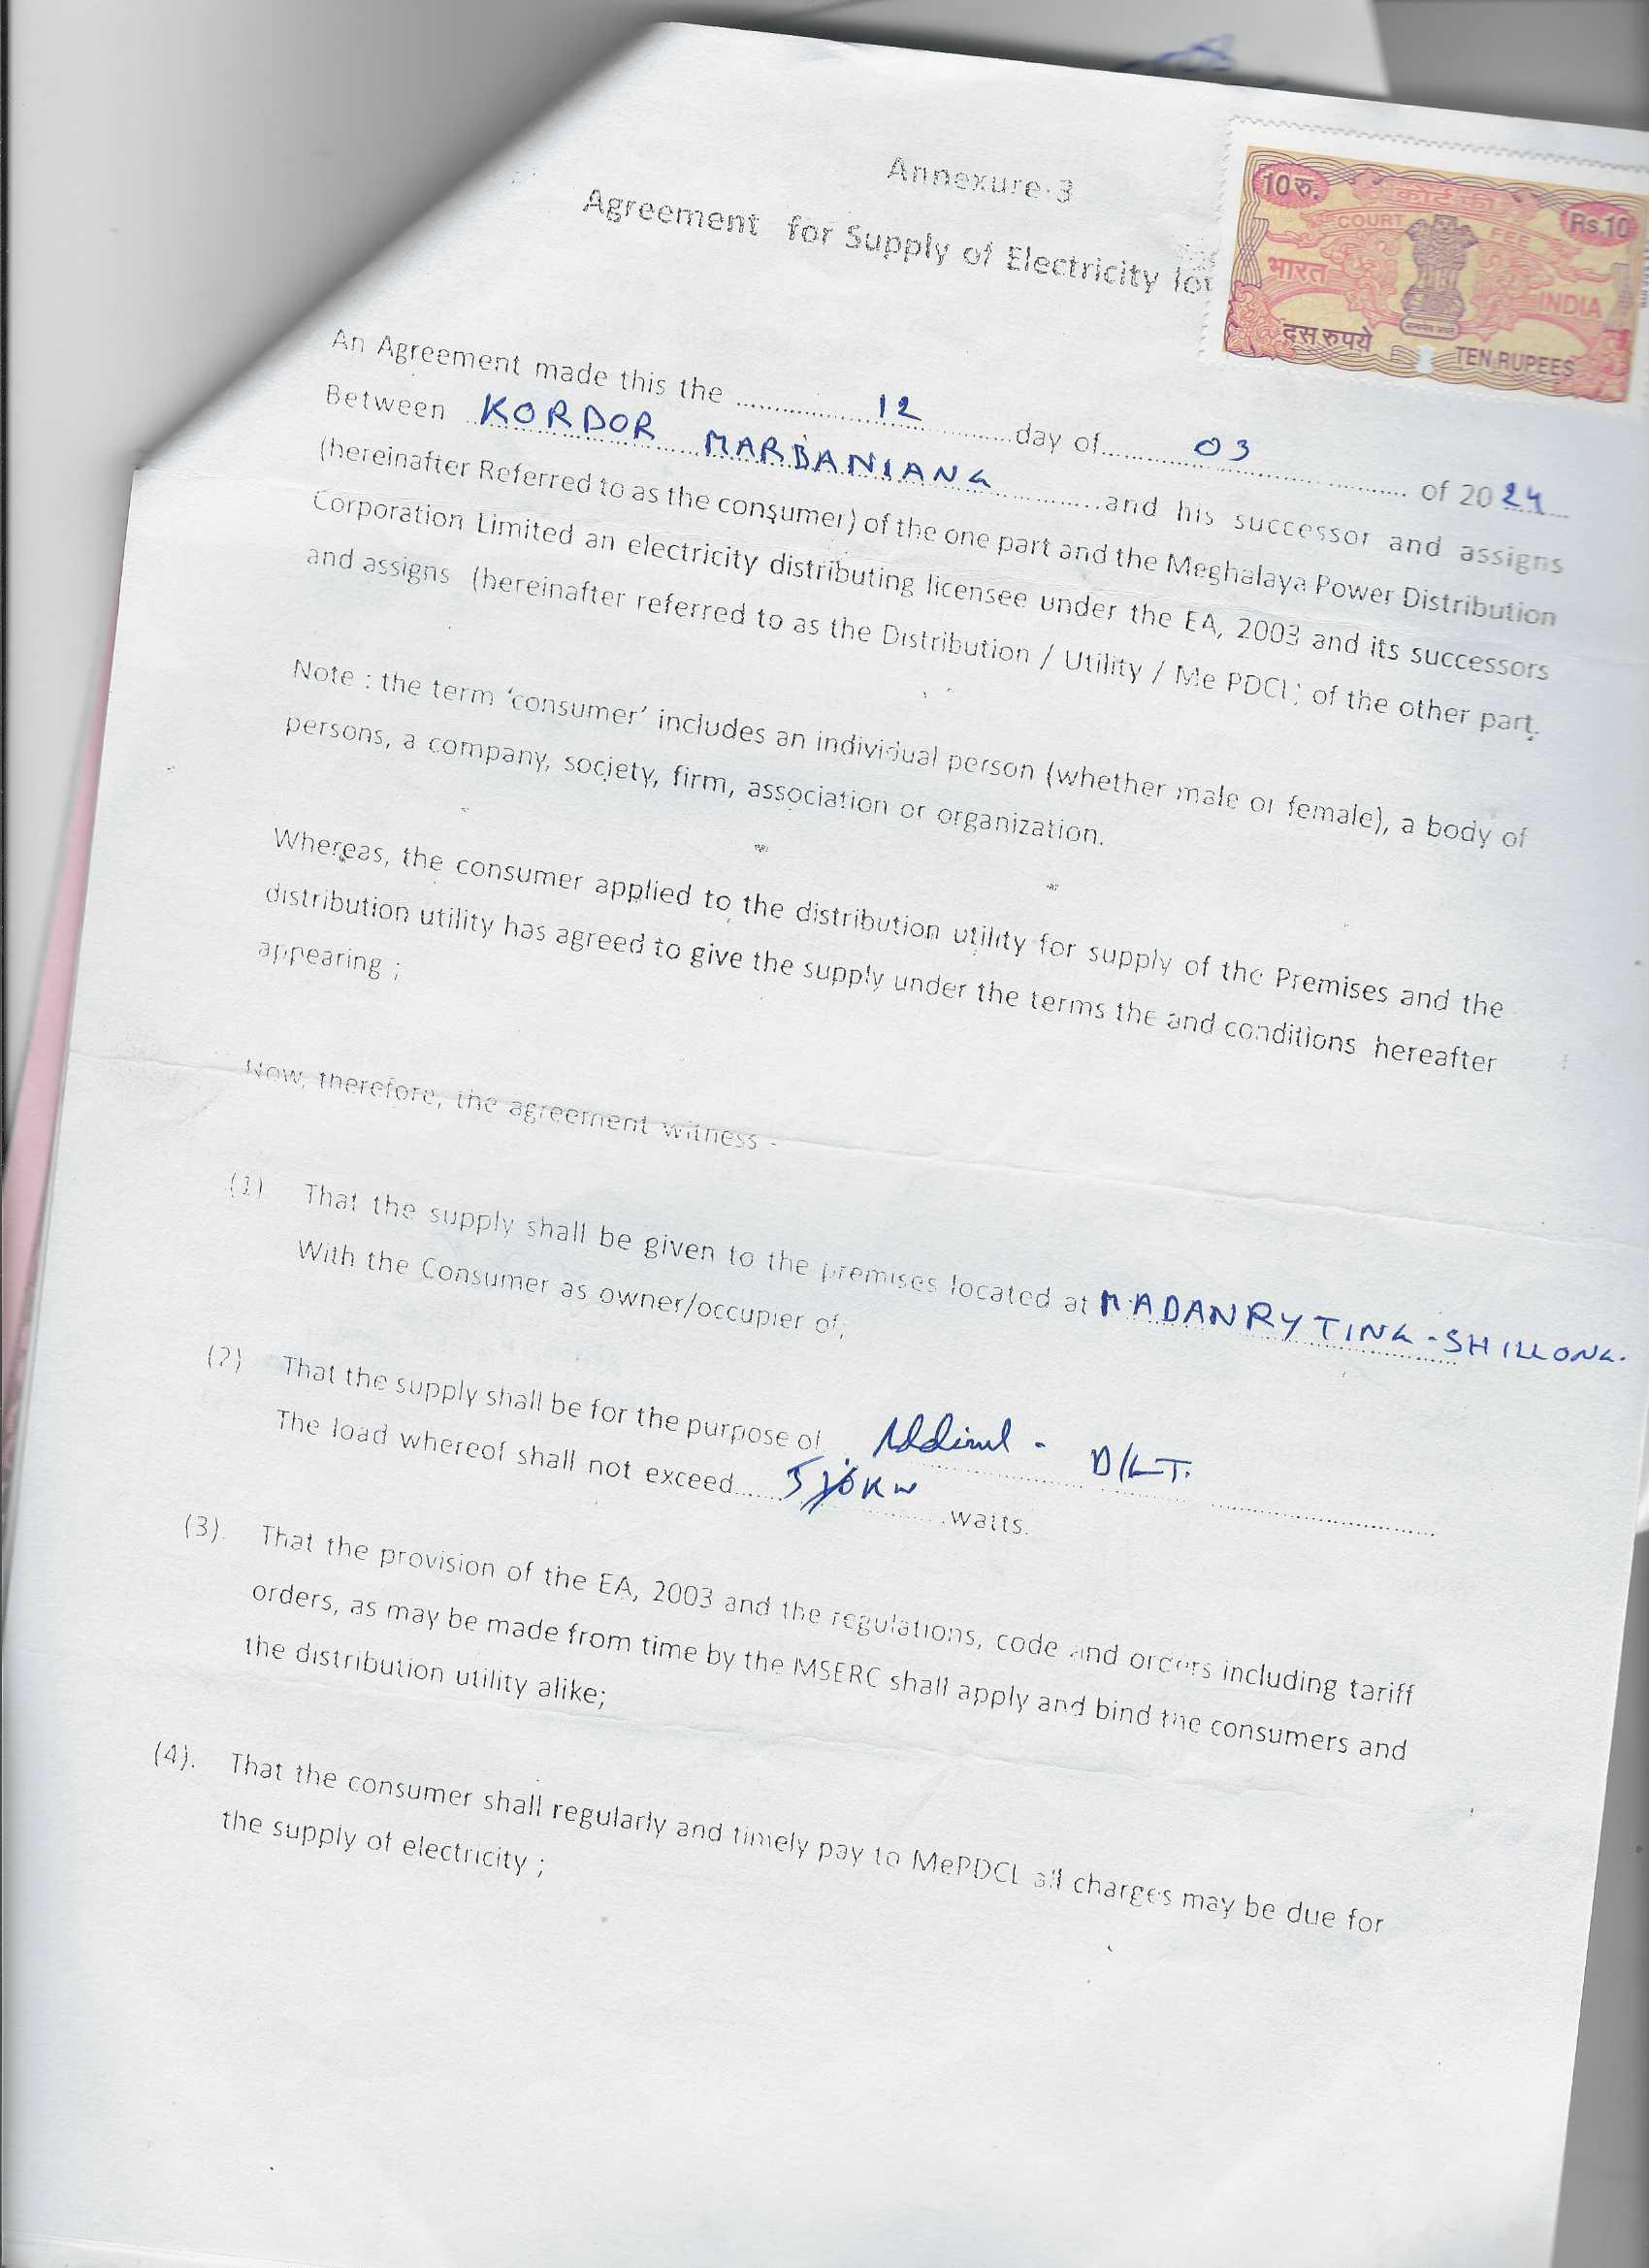 Annexure-3
Agreement for Supply of Electricity
10 रु.
कोर्ट फी
Rs.10
COURT FEE
भारत
INDIA
दस रुपये
TEN RUPEES
An Agreement made this the ............ 12 ............ day of ............ 03 ............ of 2024
Between KORDOR MARBANIANG ............ and his successor and assigns
(hereinafter Referred to as the consumer) of the one part and the Meghalaya Power Distribution
Corporation Limited an electricity distributing licensee under the EA, 2003 and its successors
and assigns (hereinafter referred to as the Distribution / Utility / Me PDCL; of the other part.
Note : the term ‘consumer’ includes an individual person (whether male or female), a body of
persons, a company, society, firm, association or organization.
Whereas, the consumer applied to the distribution utility for supply of the Premises and the
distribution utility has agreed to give the supply under the terms the and conditions hereafter
appearing ;
Now, therefore, the agreement witness -
(1) That the supply shall be given to the premises located at MADANRYTING - SHILLONG.
With the Consumer as owner/occupier of;
(2) That the supply shall be for the purpose of D/LT.
The load whereof shall not exceed ............ KW ............ watts.
(3). That the provision of the EA, 2003 and the regulations, code and orders including tariff
orders, as may be made from time by the MSERC shall apply and bind the consumers and
the distribution utility alike;
(4). That the consumer shall regularly and timely pay to MePDCL all charges may be due for
the supply of electricity ;